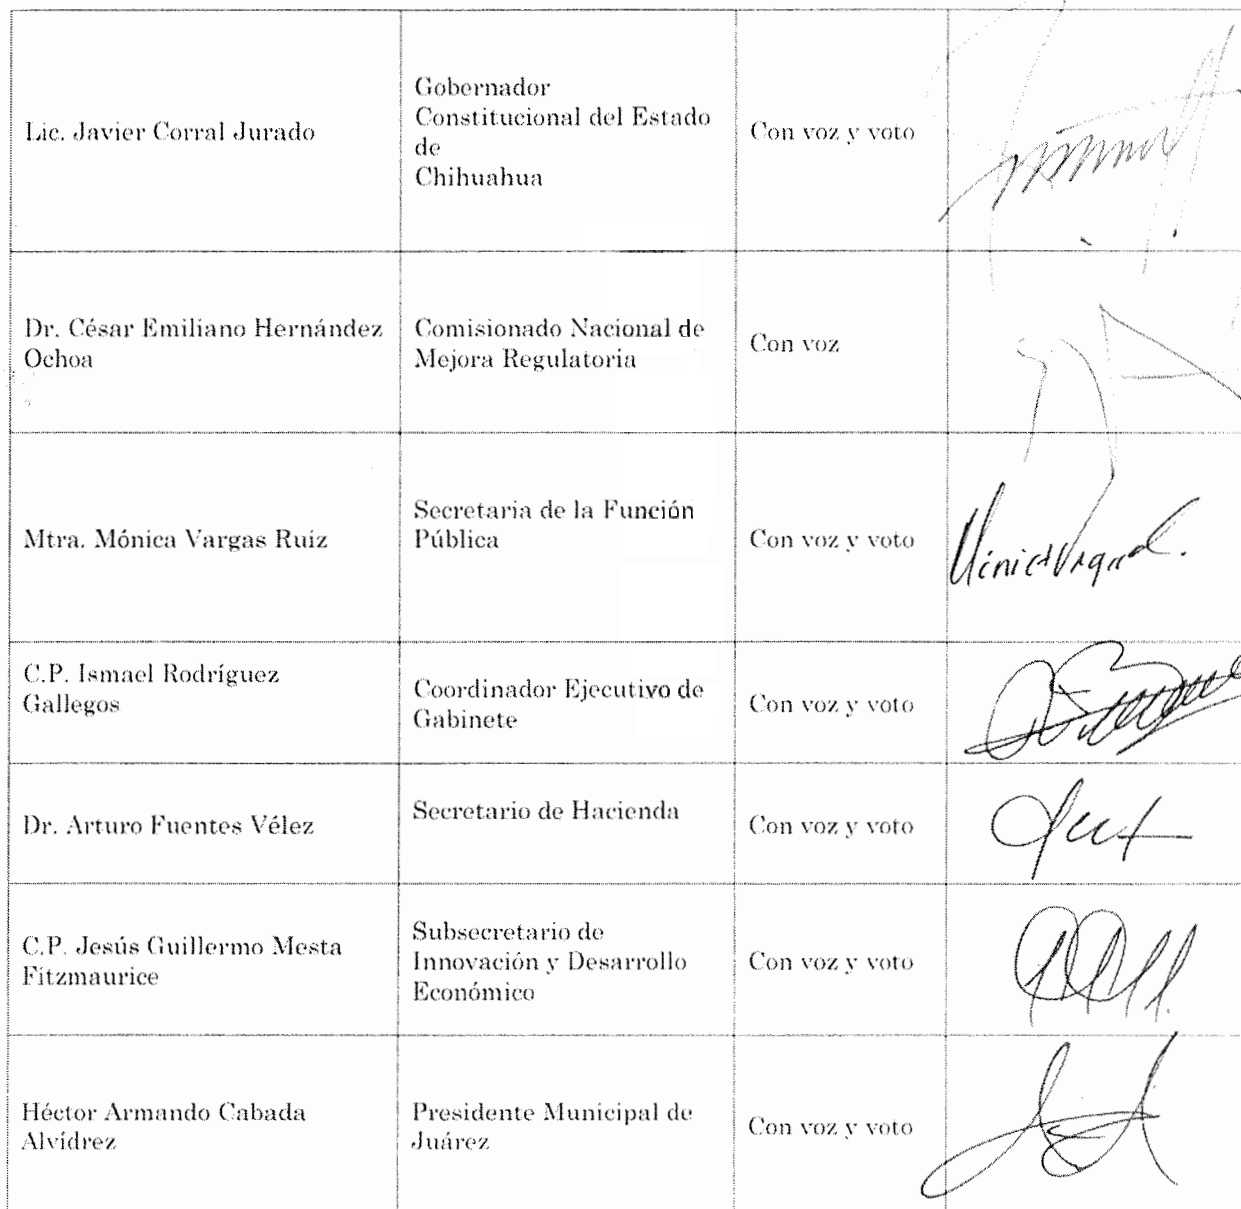 Lic. Javier Corral Jurado
Gobernador
Constitucional del Estado
de
Chihuahua
Con voz y voto
Dr. César Emiliano Hernández
Ochoa
Comisionado Nacional de
Mejora Regulatoria
Con voz
Mtra. Mónica Vargas Ruíz
Secretaria de la Función
Pública
Con voz y voto
C.P. Ismael Rodríguez
Gallegos
Coordinador Ejecutivo de
Gabinete
Con voz y voto
Dr. Arturo Fuentes Vélez
Secretario de Hacienda
Con voz y voto
C.P. Jesús Guillermo Mesta
Fitzmaurice
Subsecretario de
Innovación y Desarrollo
Económico
Con voz y voto
Héctor Armando Cabada
Alvídrez
Presidente Municipal de
Juárez
Con voz y voto